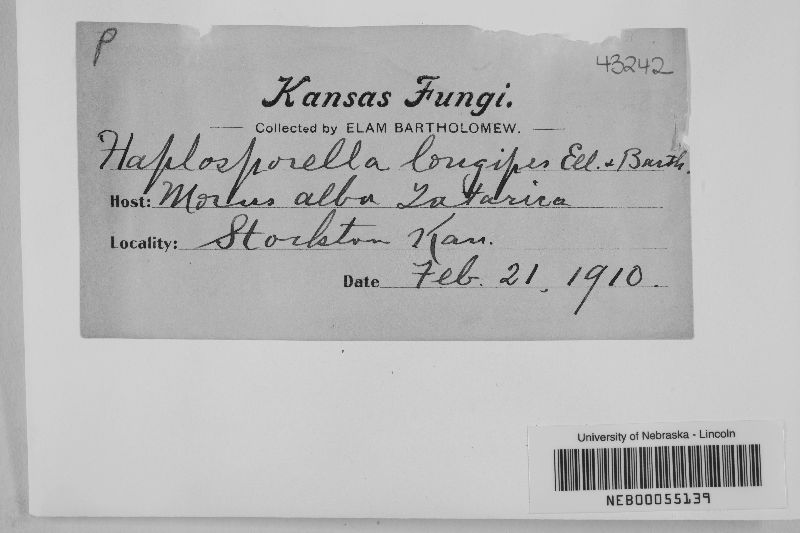 P
43242
Kansas Fungi.
Collected by ELAM BARTHOLOMEW.
Haplosporella longipes Ell. & Barth.
Host: Morus alba Tatarica
Locality: Stockton Kan.
Date Feb. 21, 1910.
University of Nebraska - Lincoln
NEB00055139